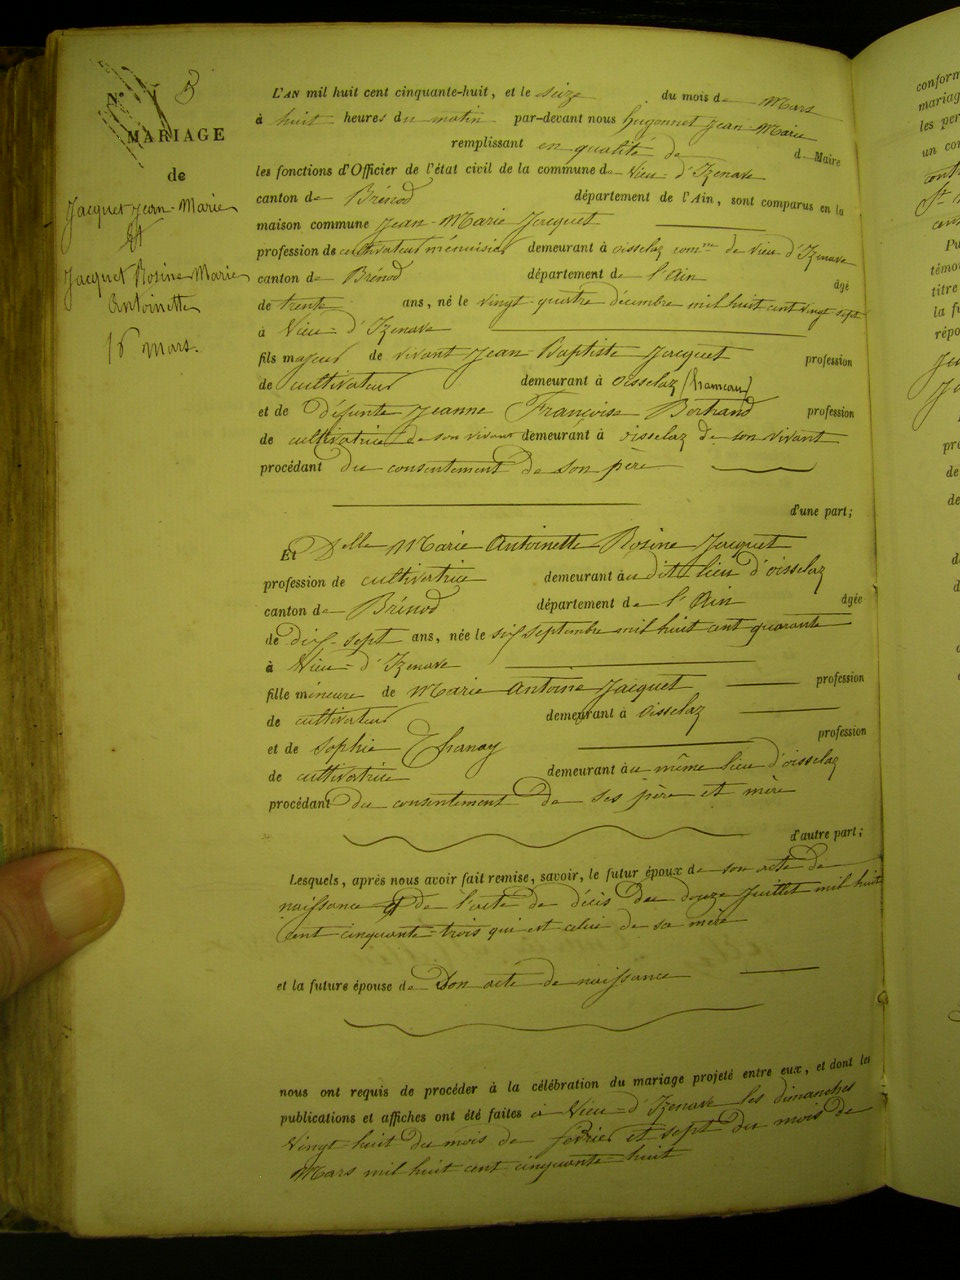 N° 3
MARIAGE
de
Jacquet Jean-Marie
Et
Jacquet Rosine Marie
Antoinette
16 mars.
L'AN mil huit cent cinquante-huit, et le seize du mois de Mars
à huit heures du matin par-devant nous Hugonnet Jean-Marie
remplissant en qualité de d Maire
les fonctions d'Officier de l'état civil de la commune de Vieu-d'Izenave
canton de Brénod département de l'Ain, sont comparus en la
maison commune Jean-Marie Jacquet
profession de cultivateur menuisier demeurant à oisselaz comne de Vieu d'Izenave
canton de Brénod département de l'Ain âgé
de trente ans, né le vingt-quatre décembre mil huit cent vingt sept
à Vieu-d'Izenave
fils majeur de vivant Jean Baptiste Jacquet profession
de cultivateur demeurant à oisselaz (hameau)
et de Défunte Jeanne Françoise Bertrand profession
de cultivatrice de son vivant demeurant à oisselaz de son vivant
procédant du consentement de son père
d'une part;
Et Delle Marie Antoinette Rosine Jacquet
profession de cultivatrice demeurant au dit lieu d'oisselaz
canton de Brénod département de l'Ain âgée
de dix-sept ans, née le six septembre mil huit cent quarante
à Vieu-d'Izenave
fille mineure de Marie Antoine Jacquet profession
de cultivateur demeurant à oisselaz
et de Sophie Chanay profession
de cultivatrice demeurant au même lieu d'oisselaz
procédant du consentement de ses père et mère
d'autre part;
Lesquels, après nous avoir fait remise, savoir, le futur époux de son acte de
naissance et de l'acte de décès du douze Juillet mil huit
cent cinquante-trois qui est celui de sa mère
et la future épouse de Son acte de naissance
nous ont requis de procéder à la célébration du mariage projeté entre eux, et dont les
publications et affiches ont été faites à Vieu-d'Izenave les dimanches
Vingt-huit du mois de février et sept du mois de
Mars mil huit cent cinquante-huit